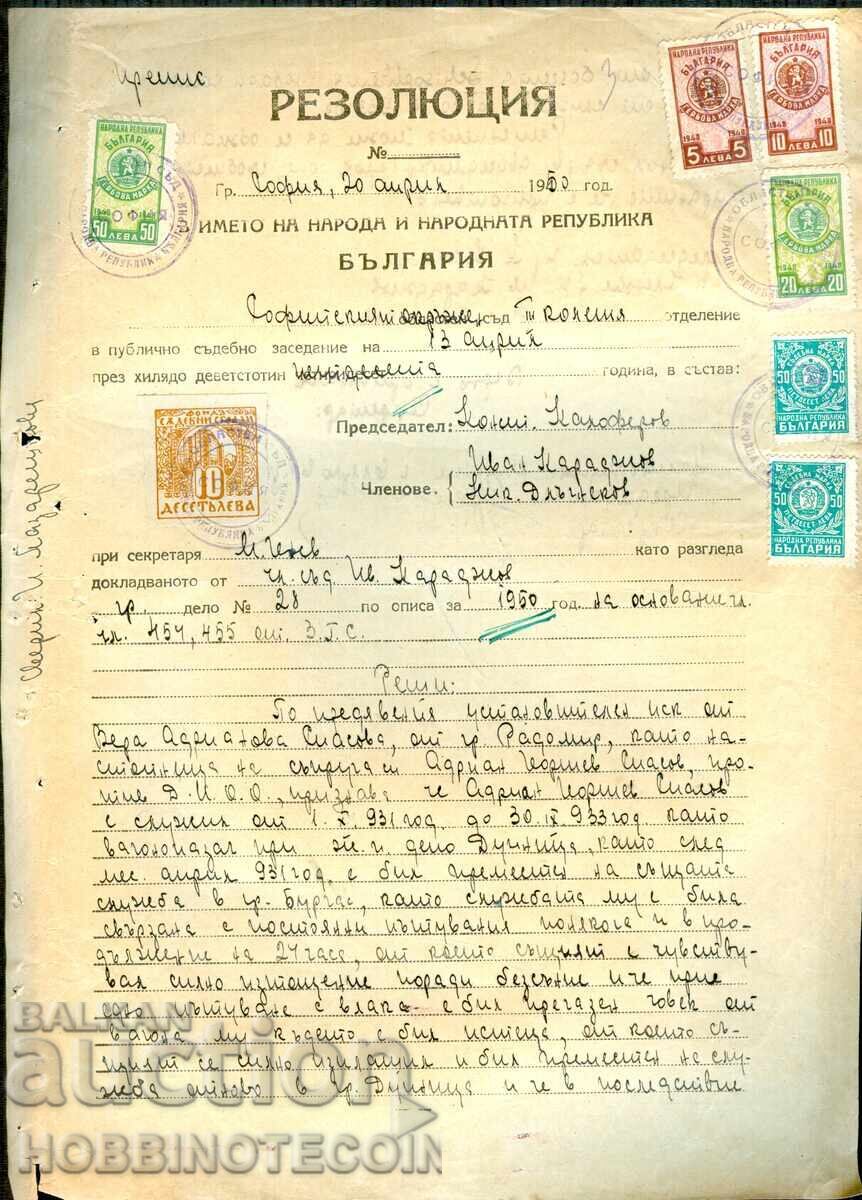 Препис
РЕЗОЛЮЦИЯ
№
Гр. София, 20 април 1950 год.
В ИМЕТО НА НАРОДА И НАРОДНАТА РЕПУБЛИКА
БЪЛГАРИЯ
Софийският окръжен съд III колегия отделение
в публично съдебно заседание на 13 април
през хилядо деветстотин петдесета година, в състав:
Председател: Конст. Калоферов
Иван Караджов
Членове: Ник. Длъгнеков
при секретаря М. Ценев като разгледа
докладваното от чл. съд. Ив. Караджов
гр. дело № 28 по описа за 1950 год. на основание
чл. 454, 455 от З.Г.С.
Реши:
По предявения установителен иск от
Вера Адрианова Спасова, от гр. Радомир, като на-
стойница на съпруга си Адриан Георгиев Спасов, про-
тив Д.И.О.О., признава че Адриан Георгиев Спасов
е служил от 1.X.931 год до 30.IX.933 год. като
вагонодач при ж.п. депо Дупница, като след
мес. април 931 год. е бил преместен на същата
служба в гр. Бургас, като службата му е била
свързана с постоянни пътувания понякога и в про-
дължение на 24 часа, от което същият е чувству-
вал силно изтощение поради безсъние и че при
едно пътуване с влака е бил прегазен човек от
вагона му където е бил ищеца, от което съ-
щият се силно изплашил и бил преместен на слу-
жба отново в гр. Дупница и че в последствие
НАРОДНА РЕПУБЛИКА
БЪЛГАРИЯ
ГЕРБОВА МАРКА
1948 1948
50 ЛЕВА 50
НАРОДНА РЕПУБЛИКА
БЪЛГАРИЯ
ГЕРБОВА МАРКА
1948 1948
5 ЛЕВА 5
НАРОДНА РЕПУБЛИКА
БЪЛГАРИЯ
ГЕРБОВА МАРКА
1948 1948
10 ЛЕВА 10
НАРОДНА РЕПУБЛИКА
БЪЛГАРИЯ
ГЕРБОВА МАРКА
1948 1948
20 ЛЕВА 20
СЪДЕБНА МАРКА
50 50
ПЕТДЕСЕТ ЛЕВА
НАРОДНА РЕПУБЛИКА
БЪЛГАРИЯ
СЪДЕБНА МАРКА
50 50
ПЕТДЕСЕТ ЛЕВА
НАРОДНА РЕПУБЛИКА
БЪЛГАРИЯ
ФОНД
СЪДЕБНИ СГРАДИ
10
ДЕСЕТЬ ЛЕВА
BALKAN
auction
HOBBINOTECOIN